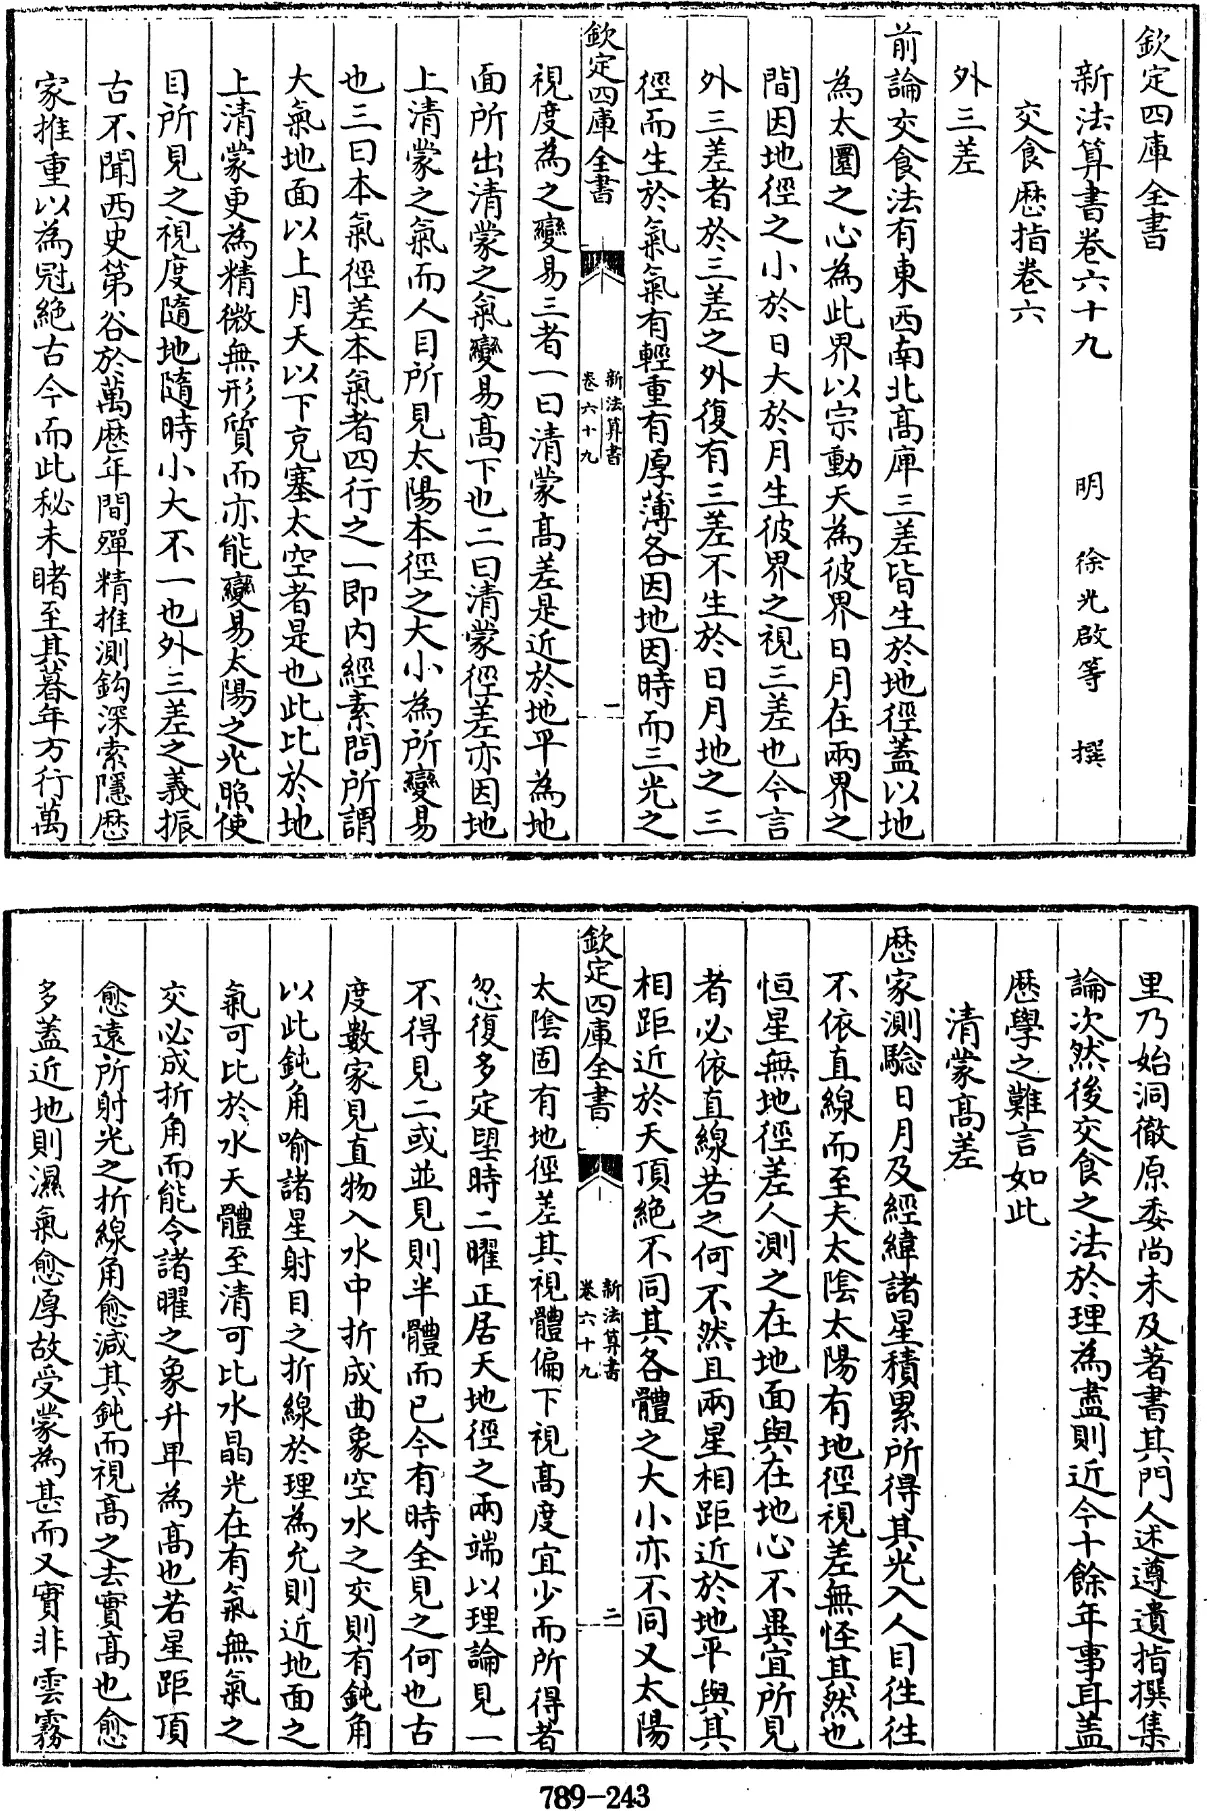 欽定四庫全書
新法算書巻六十九　明　徐光啟等　撰
交食厯指巻六
外三差
前論交食法有東西南北髙庳三差皆生於地徑蓋以地
為太圜之心為此界以宗動天為彼界日月在兩界之
間因地徑之小於日大於月生彼界之視三差也今言
外三差者於三差之外復有三差不生於日月地之三
徑而生於氣氣有輕重有厚薄各因地因時而三光之
欽定四庫全書　新法算書　卷六十九　一
視度為之變易三者一曰清蒙髙差是近於地平為地
面所出清蒙之氣變易髙下也二曰清蒙徑差亦因地
上清蒙之氣而人目所見太陽本徑之大小為所變易
也三曰本氣徑差本氣者四行之一即内經素問所謂
大氣地面以上月天以下充塞太空者是也此比於地
上清蒙更為精微無形質而亦能變易太陽之光照使
目所見之視度隨地隨時小大不一也外三差之義振
古不聞西史第谷於萬厯年間殫精推測鈎深索隱厯
家推重以為冠絶古今而此秘未睹至其暮年方行萬
里乃始洞徹原委尚未及著書其門人述遵遺指撰集
論次然後交食之法於理為盡則近今十餘年事耳蓋
厯學之難言如此
清蒙髙差
厯家測騐日月及經緯諸星積累所得其光入人目徃徃
不依直線而至夫太隂太陽有地徑視差無怪其然也
恒星無地徑差人測之在地面與在地心不異宜所見
者必依直線若之何不然且兩星相距近於地平與其
相距近於天頂絶不同其各體之大小亦不同又太陽
欽定四庫全書　新法算書　卷六十九　二
太隂固有地徑差其視體偏下視髙度宜少而所得者
忽復多定望時二曜正居天地徑之兩端以理論見一
不得見二或並見則半體而已今有時全見之何也古
度數家見直物入水中折成曲象空水之交則有鈍角
以此鈍角喻諸星射目之折線於理為允則近地面之
氣可比於水天體至清可比水晶光在有氣無氣之
交必成折角而能令諸曜之象升卑為髙也若星距頂
愈遠所射光之折線角愈減其鈍而視髙之去實髙也愈
多蓋近地則濕氣愈厚故受蒙為甚而又實非雲霧
789-243